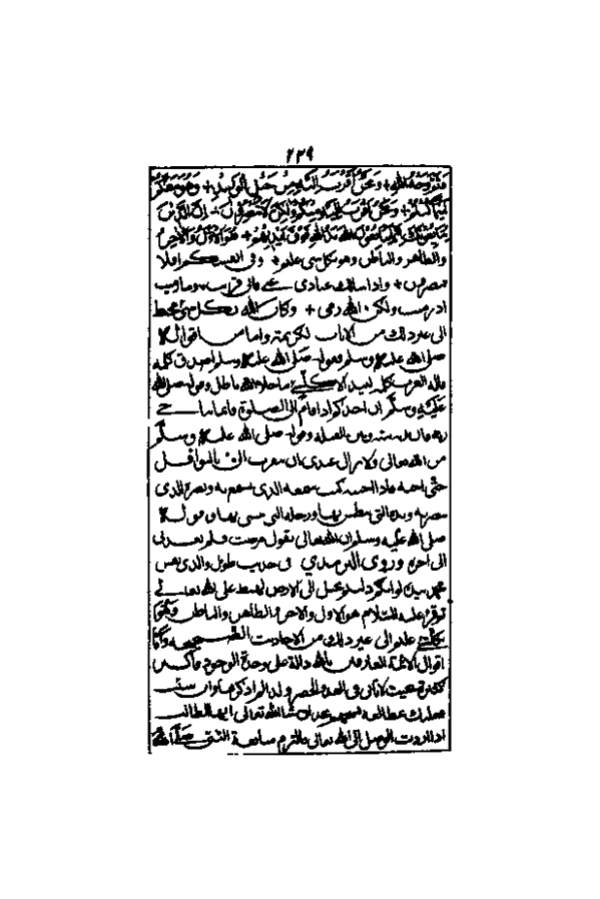 ٢٣٩
فثم وجه الله + ونحن أقرب إليه من حبل الوريد + وهو معكم
أينما كنتم + ونحن أقرب إليه منكم ولكن لا تبصرون + إن الذين
يبايعونك إنما يبايعون الله يد الله فوق أيديهم + هو الأول والآخر
والظاهر والباطن وهو بكل شي عليم + وفي انفسكم افلا
تبصرون + واذا سالك عبادي عني فاني قريب وما رميت
اذ رميت ولكن الله رمى + وكان الله بكل شي محيط
الى غير ذلك من الايات الكريمة واما من اقواله
صلى الله عليه وسلم فقوله صلى الله عليه وسلم اصدق كلمة
قالها العرب كلمة لبيد الا كل شي ما خلا الله باطل وقوله صلى الله
عليه وسلم ان احدكم اذا قام الى الصلوة فانما يناجي
ربه فان ربه بينه وبين القبلة وقوله صلى الله عليه وسلم
عن الله تعالى ولا يزال عبدي يتقرب الي بالنوافل
حتى احبه فاذا احببته كنت سمعه الذي يسمع به وبصره الذي
يبصر به ويده التي يبطش بها ورجله التي يمشي بها وقوله
صلى الله عليه وسلم ان الله تعالى يقول مرضت فلم تعدني
الى اخره وروى الترمذي في حديث طويل والذي نفس
محمد بيده لو انكم دليتم بحبل الى الارض لهبط على الله تعالى
ثم قرا عليه السلام هو الاول والاخر والظاهر والباطن وهو
بكل شي عليم الى غير ذلك من الاحاديث الصحيحة واما
اقوال الائمة العارفين بالله دالة على وحدة الوجود
كثيرة بحيث لا تاتي في العد والحصر
ان شا الله تعالى ايها الطالب
اذا اردت الوصل الى الله تعالى فالتزم متابعة النبي صلى الله